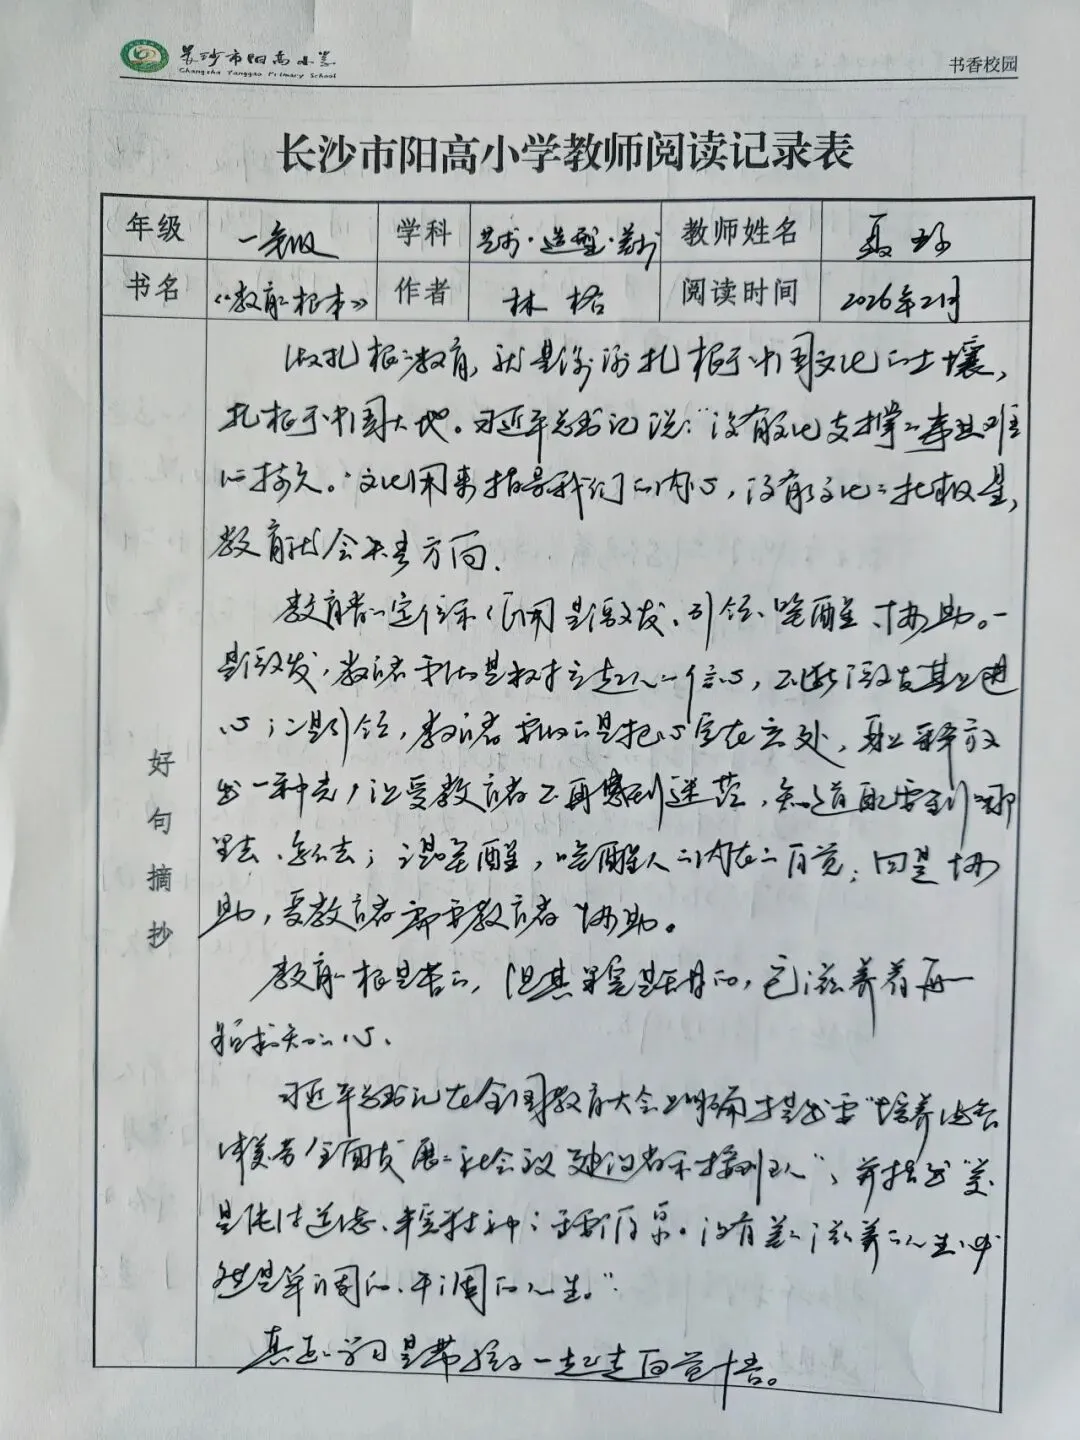 长沙市阳高小学
Changsha Yanggao Primary School
书香校园
长沙市阳高小学教师阅读记录表
年级 一年级 学科 艺术·造型·美术 教师姓名 聂
书名 《教育的根本》 作者 林格 阅读时间 2026年2月
好句摘抄
做扎根的教育,就是深深扎根于中国文化的土壤,
扎根于中国大地。习近平总书记说:“没有文化支撑的事业难
以持久。”文化用来指导我们的内心,没有文化的扎根,
教育就会失去方向.
教育者的定位和作用是激发、引领、唤醒、协助。一
是激发,教育者要的是树立起人的信心,不断激发其上进
心;二是引领,教育者要的是把心安在高处,身上释放
出一种光,让受教育者不再感到迷茫,知道要到哪
里去、怎么去;三是唤醒,唤醒人的内在的自觉;四是协
助,受教育者需要教育者协助。
教育的根是苦的,但其果实是甜的,它滋养着每一
颗求知的心.
习近平总书记在全国教育大会上明确提出要“培养德智
体美劳全面发展的社会主义建设者和接班人”,并指出“美
是纯洁道德、丰富精神的重要源泉。没有美的滋养的人生必
然是单调的、干涸的人生。”
真正的学习是带孩子一起走向觉悟。